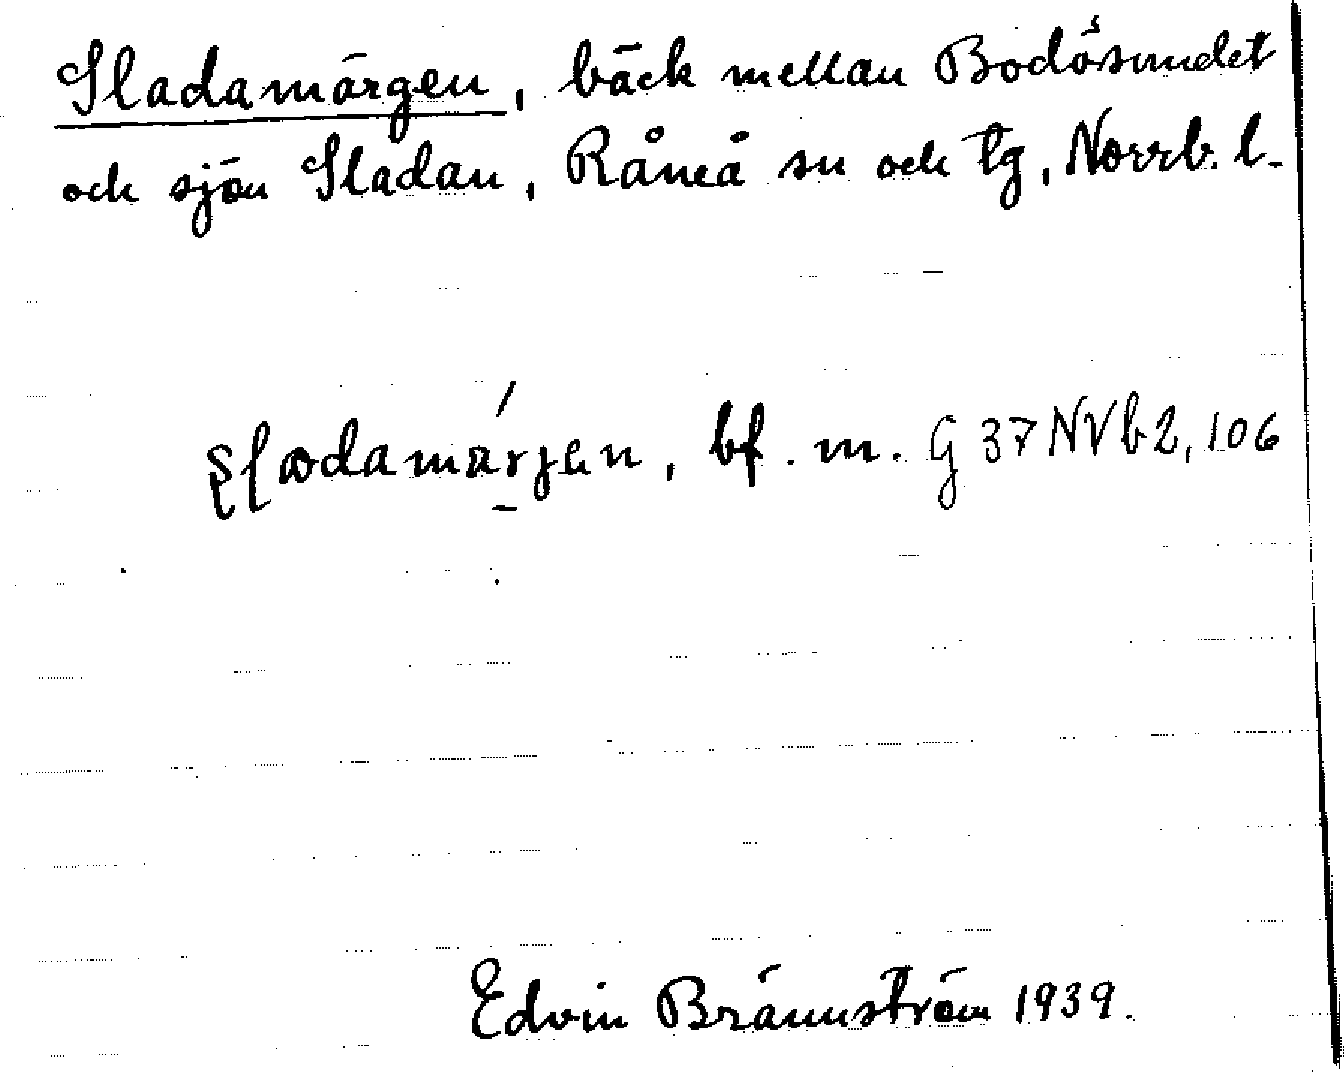 Sladamärgen, bäck mellan Bodösundet
och sjön Sladan, Råneå sn och tg, Norrb. l.
bf. m. G 37 NVb2, 106
Edvin Brännström 1939.